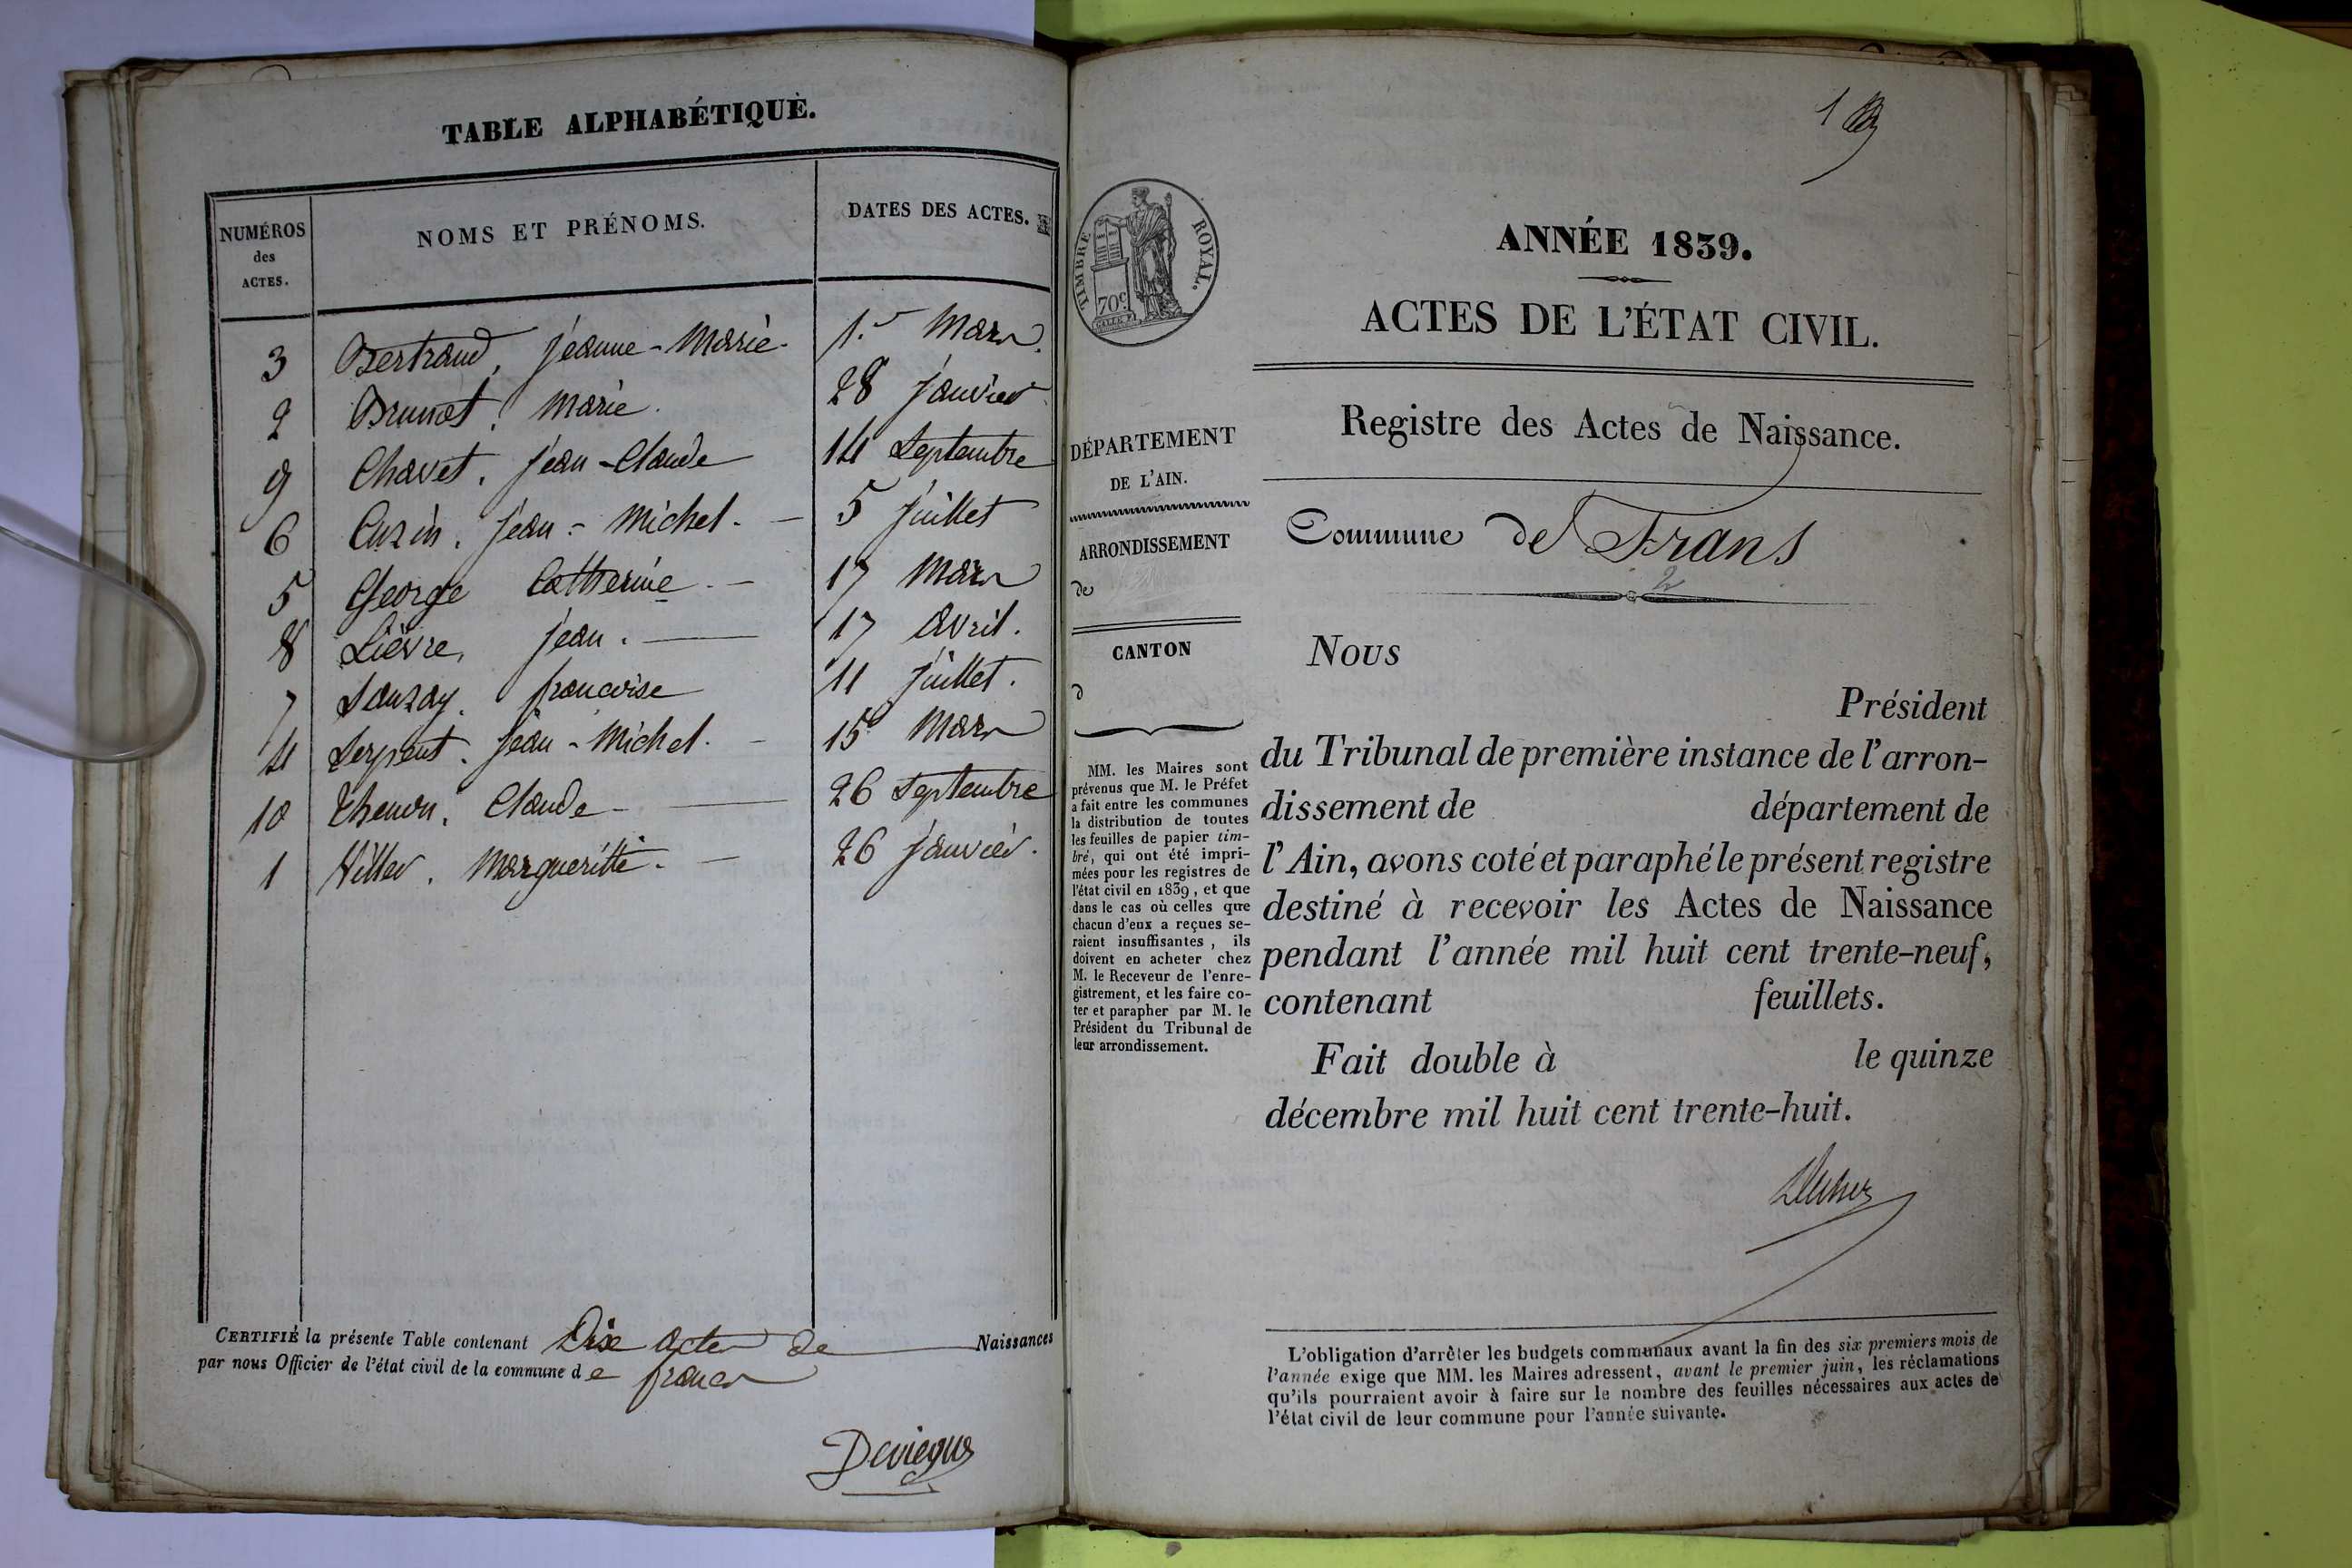 TABLE ALPHABÉTIQUE.
NUMÉROS des ACTES. NOMS ET PRÉNOMS. DATES DES ACTES.
3 Bertrand, jeanne-Marie. 1.er Mars.
2 Brunet, Marie. 28 janvier
9 Chavet, jean-Claude 14 Septembre
6 Cuzin, jean-Michel. 5 juillet
5 George Catherine. 17 Mars
8 Lièvre, jean. 17 avril.
7 Sauzay, francoise 11 juillet.
4 Serpent, jean-Michel. 15 Mars
10 Thenon, Claude 26 Septembre
1 Margueritte. 26 janvier.
CERTIFIÉ la présente Table contenant Dix actes de Naissances
par nous Officier de l'état civil de la commune de francs
1
TIMBRE ROYAL.
70c
ANNÉE 1839.
ACTES DE L'ÉTAT CIVIL.
Registre des Actes de Naissance.
DÉPARTEMENT
DE L'AIN.
ARRONDISSEMENT
de
CANTON
d
MM. les Maires sont
prévenus que M. le Préfet
a fait entre les communes
la distribution de toutes
les feuilles de papier tim-
bré, qui ont été impri-
mées pour les registres de
l'état civil en 1839, et que
dans le cas où celles que
chacun d'eux a reçues se-
raient insuffisantes, ils
doivent en acheter chez
M. le Receveur de l'enre-
gistrement, et les faire co-
ter et parapher par M. le
Président du Tribunal de
leur arrondissement.
Commune de Frans
2
Nous
Président
du Tribunal de première instance de l'arron-
dissement de département de
l'Ain, avons coté et paraphé le présent registre
destiné à recevoir les Actes de Naissance
pendant l'année mil huit cent trente-neuf,
contenant feuillets.
Fait double à le quinze
décembre mil huit cent trente-huit.
L'obligation d'arrêter les budgets communaux avant la fin des six premiers mois de
l'année exige que MM. les Maires adressent, avant le premier juin, les réclamations
qu'ils pourraient avoir à faire sur le nombre des feuilles nécessaires aux actes de
l'état civil de leur commune pour l'année suivante.